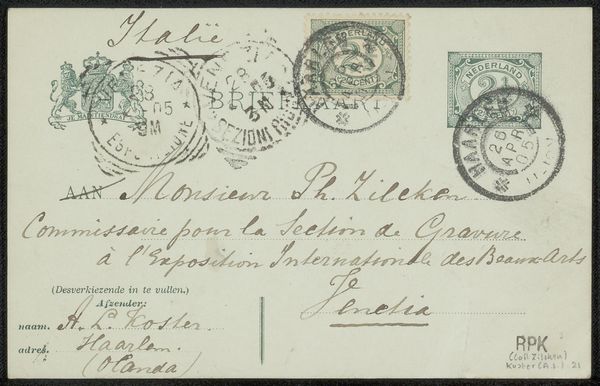 Italië
JE MAINTIENDRAI
BRIEFKAART
NEDERLAND
2½ CENT
NEDERLAND
HAARLEM
26
APR
05
ESPOSIZIONE
AAN Monsieur Ph. Zilcken
Commissaire pour la Section de Gravure
à l'Exposition Internationale des Beaux-Arts
Venetia
(Desverkiezende in te vullen.)
Afzender:
naam. A. L. Koster.
adres. Haarlem
(Olanda)
RPK
(Coll Zilcken)
Koster (A.L.) 21